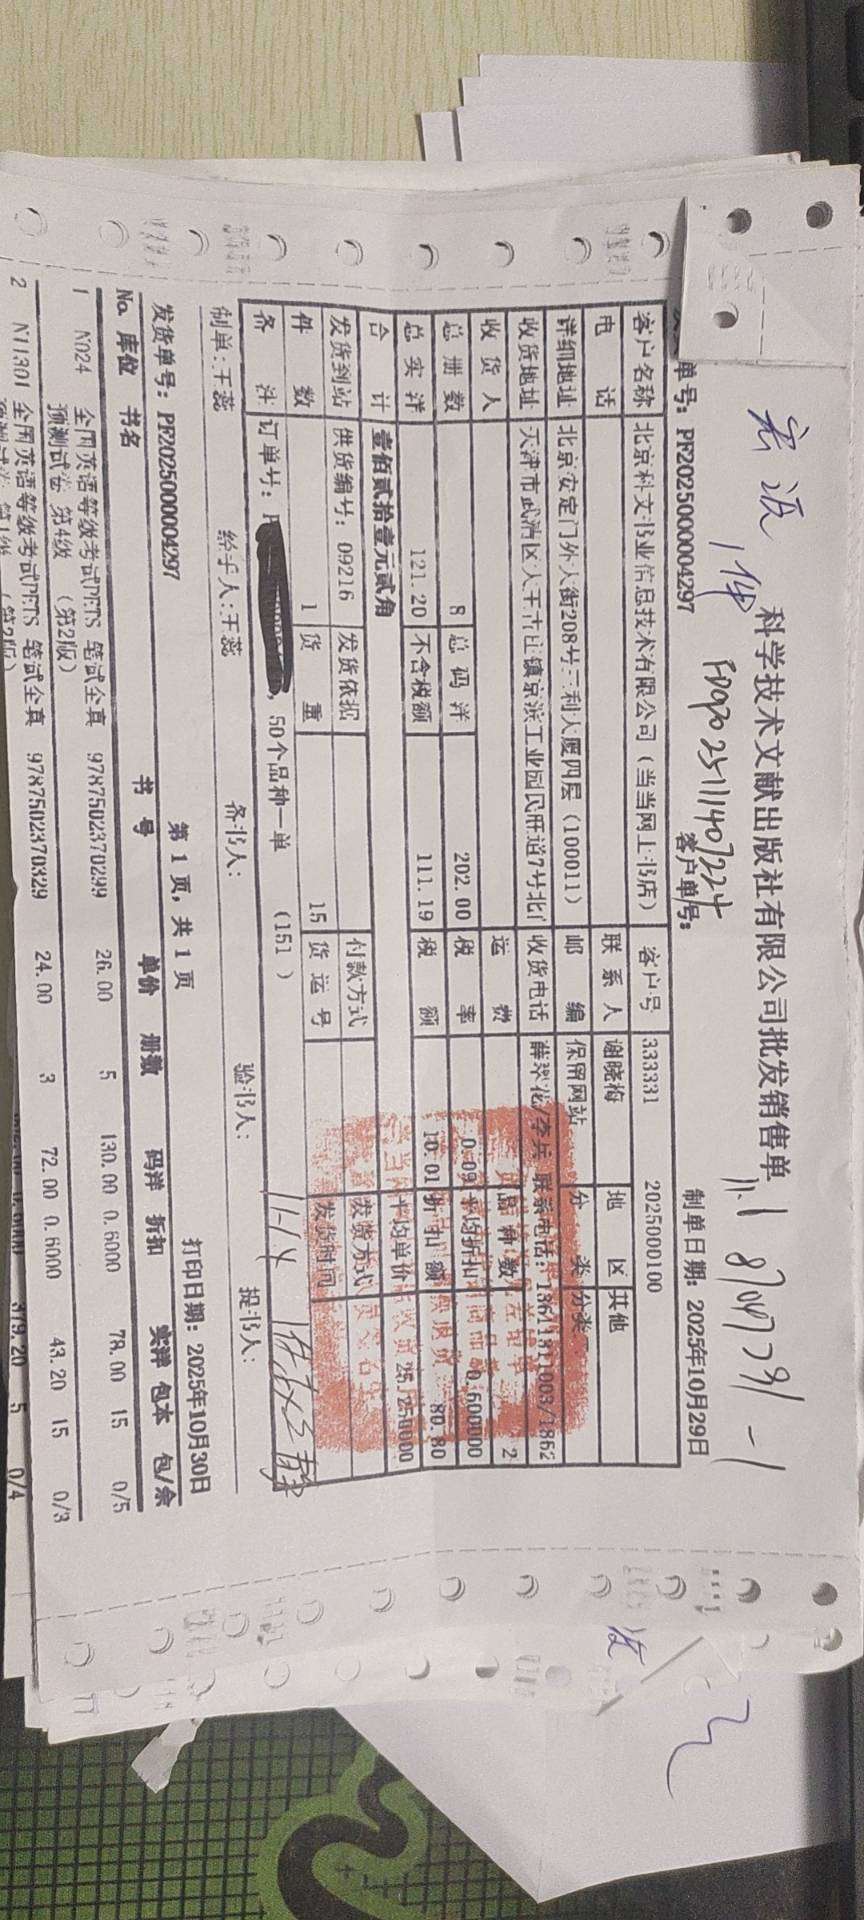 科学技术文献出版社有限公司批发销售单
1件
单号: PF2025000004297
客户单号:
制单日期: 2025年10月29日
客户名称 北京科文书业信息技术有限公司(当当网上书店) 客户号 333331 2025000100
电话 联系人 谢晓梅 地区 其他
详细地址 北京安定门外大街208号三利大厦四层(100011) 邮编 保留网站 分类 分类
收货地址 天津市武清区大王古庄镇京滨工业园民旺道7号北门 收货电话 薛翠花/李兵 联系电话:
收货人 运费 品种数 2
总册数 8 总码洋 202.00 税率 0.09 平均折扣 0.600000
总实洋 121.20 不含税额 111.19 税额 10.01 折扣额 80.80
合计 壹佰贰拾壹元贰角 平均单价 25.250000
发货到站 供货编号: 09216 发货依据 付款方式 发货方式
件数 1 货重 15 货运号 发货时间
备注 订单号: , 50个品种一单 (151 )
11-14
制单:王蕊 经手人:王蕊 备书人: 验书人: 提书人:
发货单号: PF2025000004297 第 1 页, 共 1 页 打印日期: 2025年10月30日
No. 库位 书名 书号 单价 册数 码洋 折扣 实洋 包本 包/余
1 N024 全国英语等级考试PETS 笔试全真 9787502370299 26.00 5 130.00 0.6000 78.00 15 0/5
预测试卷 第4级 (第2版)
2 N11301 全国英语等级考试PETS 笔试全真 9787502370329 24.00 3 72.00 0.6000 43.20 15 0/3
预测试卷 第1级 (第2版)
379.20 5 0/4